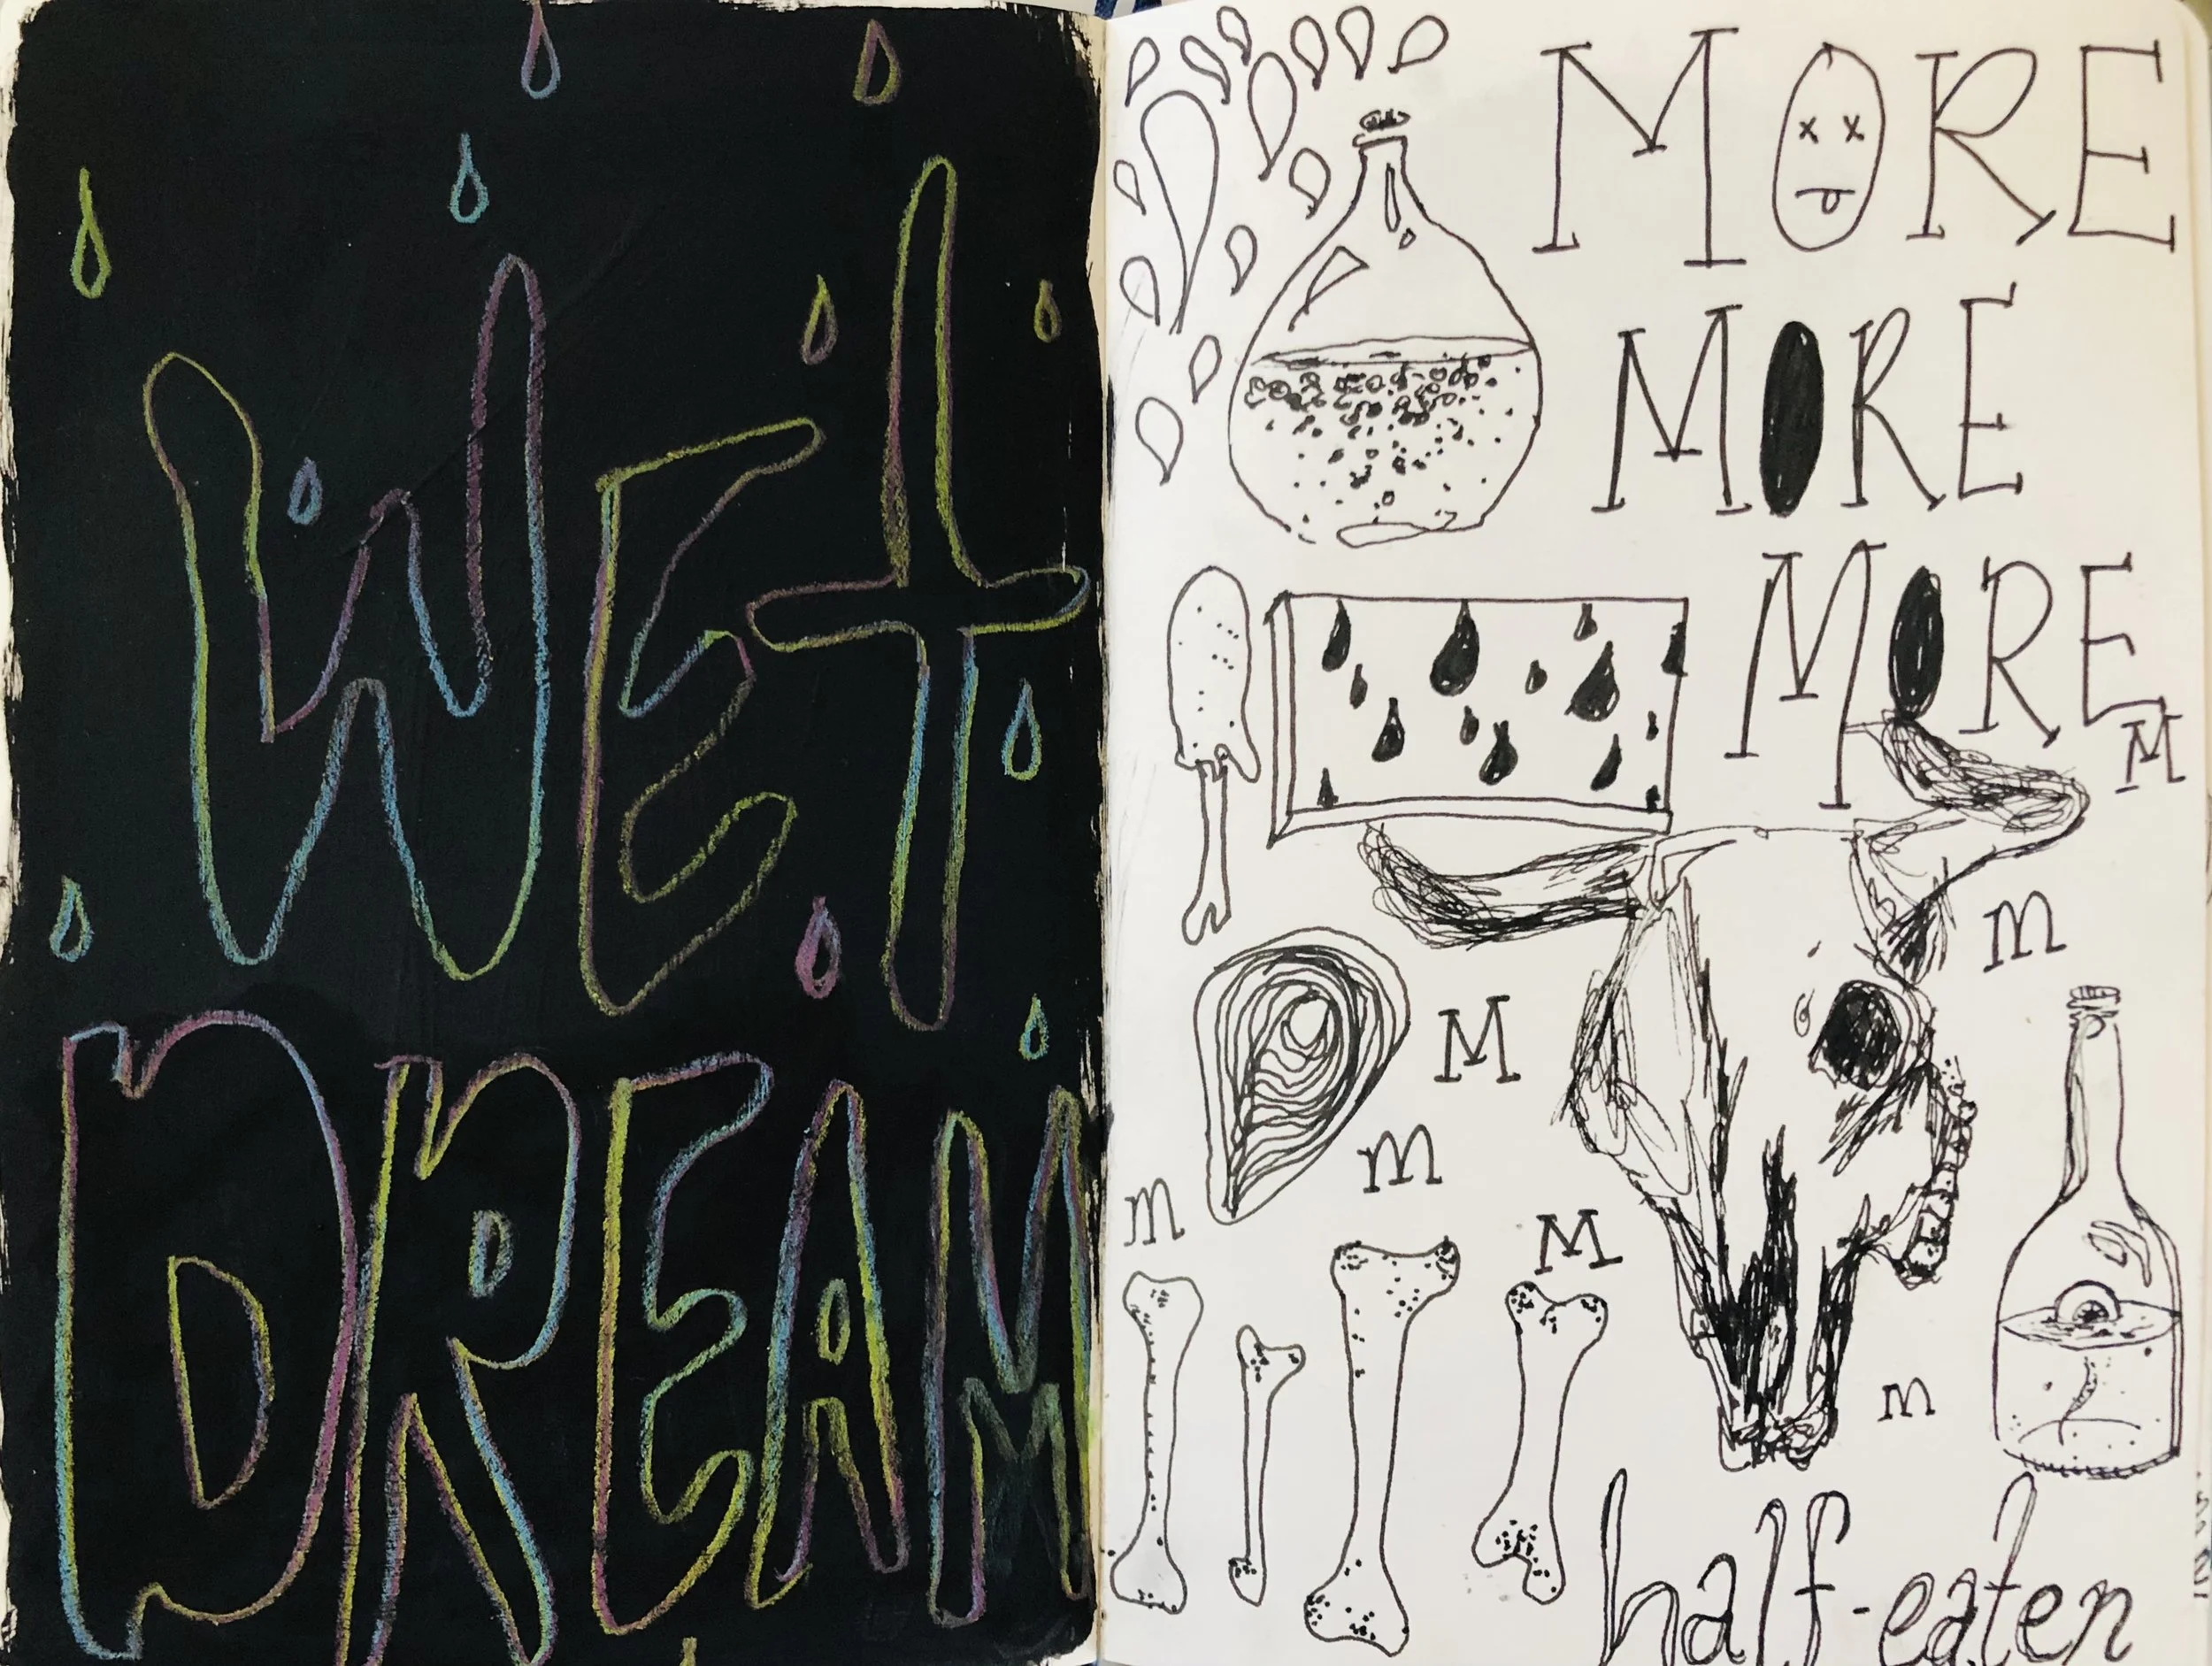 WEt
DREAM
MORE
MORE
MORE
M
m
M
m
m
M
m
half-eaten